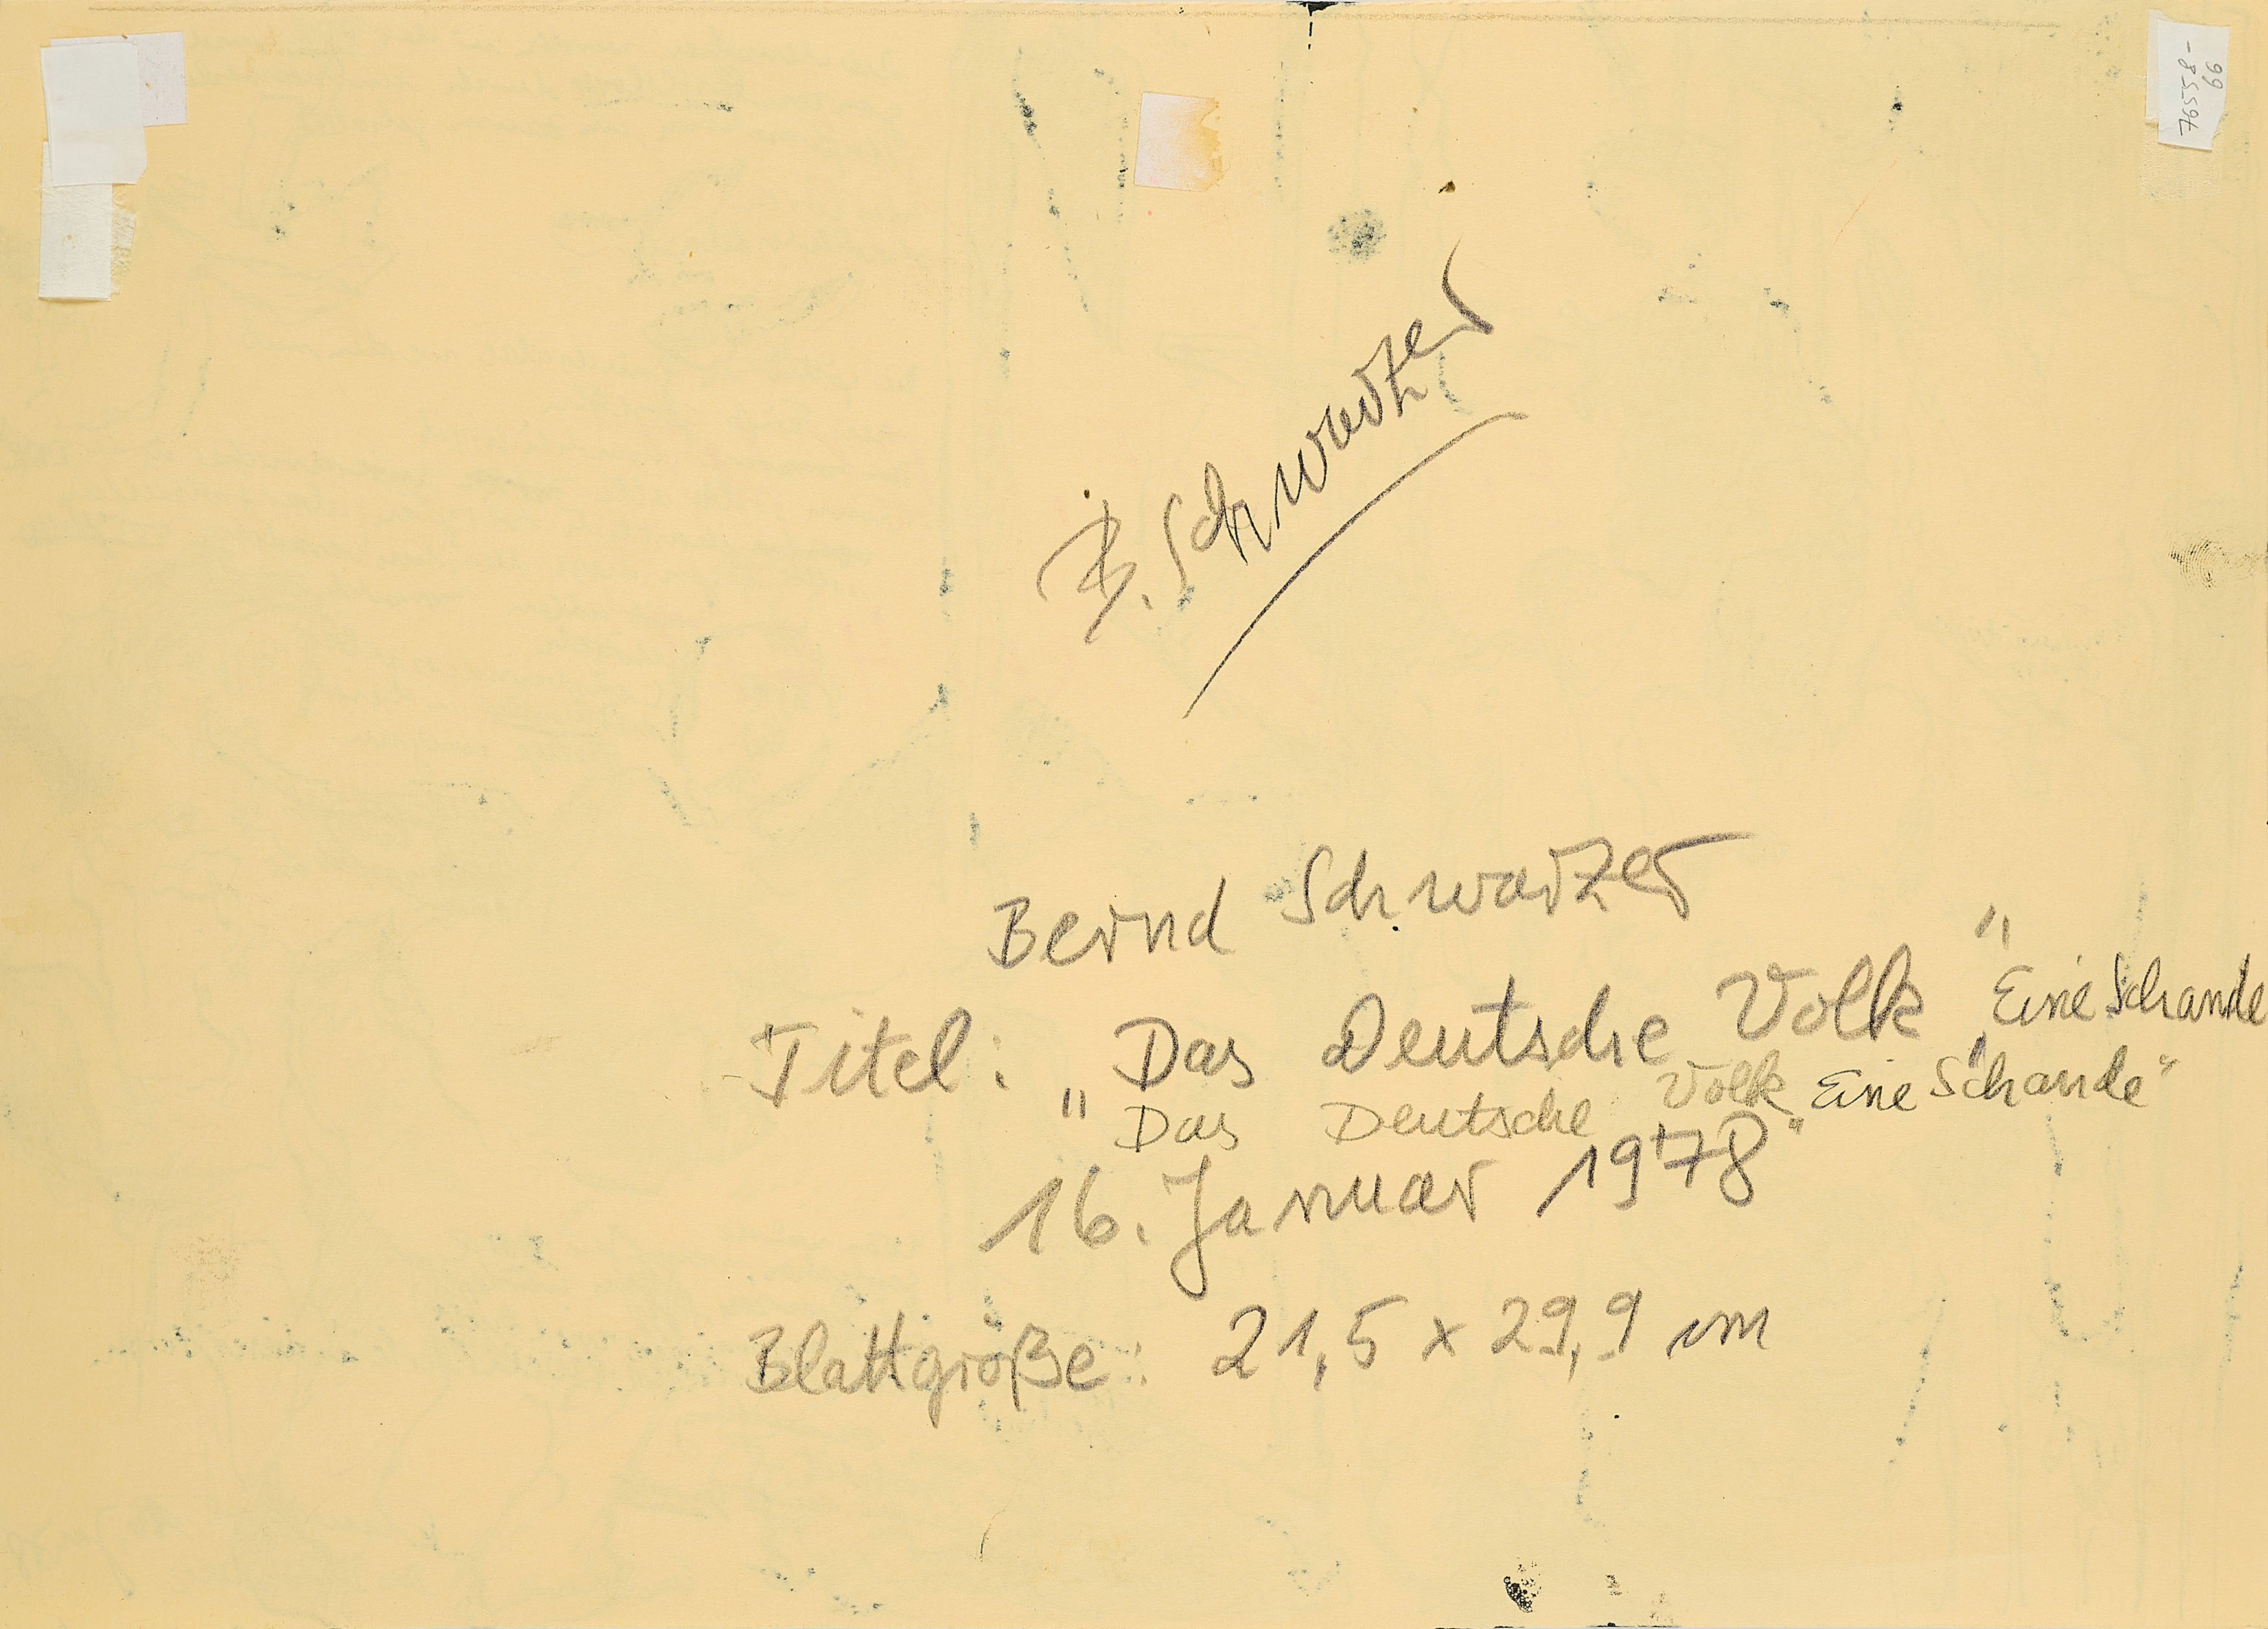 76558-
99
B. Schwarzer
Bernd Schwarzer
Titel: "Das Deutsche Volk" Eine Schande
"Das Deutsche Volk "Eine Schande"
16. Januar 1978
Blattgröße: 21,5 x 29,9 cm